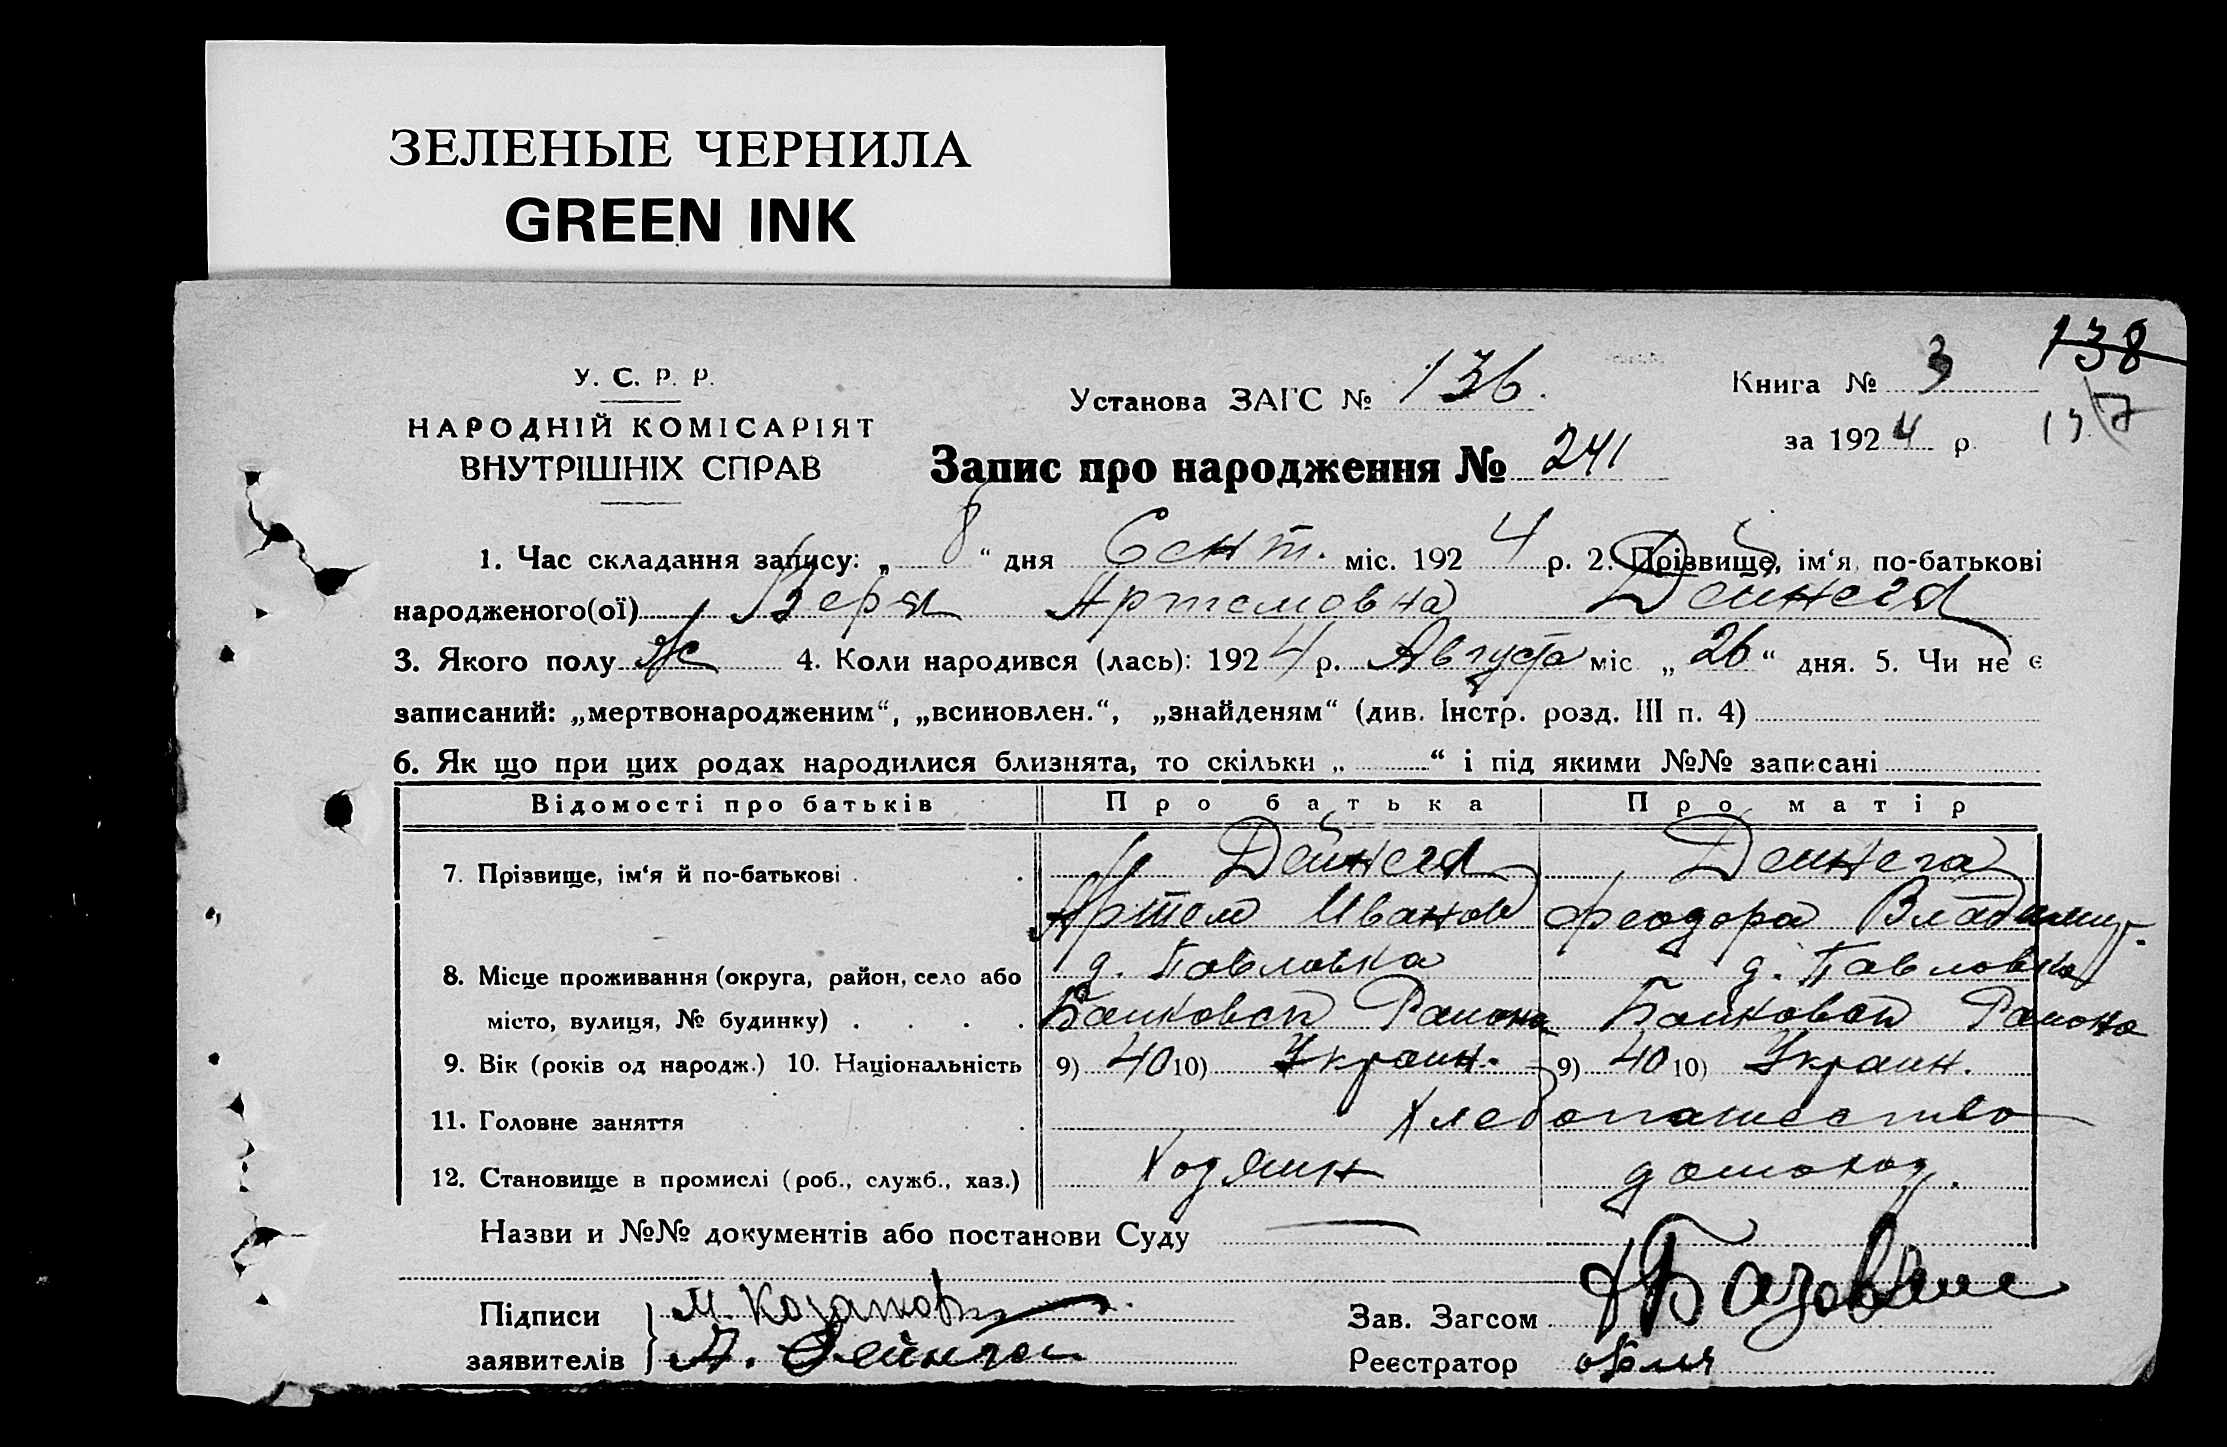 ЗЕЛЕНЫЕ ЧЕРНИЛА
GREEN INK
138
137
У. С. Р. Р.
НАРОДНІЙ КОМІСАРІЯТ
ВНУТРІШНІХ СПРАВ
Установа ЗАГС № 136.
Книга № 3
за 1924 р.
Запис про народження № 241
1. Час складання запису: „ 8 “ дня Сент. міс. 1924 р. 2. Прізвище, ім‘я, по-батькові
народженого(ої) Вера Артемовна Дейнега
3. Якого полу Ж 4. Коли народився (лась): 1924 р. Августа міс „ 26 “ дня. 5. Чи не є
записаний: „мертвонародженим“, „всиновлен.“, „знайденям“ (див. Інстр. розд. III п. 4)
6. Як що при цих родах народилися близнята, то скільки „ “ і під якими №№ записані
Відомості про батьків Про батька Про матір
7. Прізвище, ім‘я й по-батькові Дейнега Дейнега
Артем Иванов Феодора Владимир.
8. Місце проживання (округа, район, село або д. Павловка д. Павловка
місто, вулиця, № будинку) Района Района
9. Вік (років од народж.) 10. Національність 9) 40 10) Украин. 9) 40 10) Украин.
11. Головне заняття Хлебопашество
12. Становище в промислі (роб., служб., хаз.) домохоз.
Назви и №№ документів або постанови Суду
Підписи
заявителів А. Дейнега
Зав. Загсом
Реєстратор